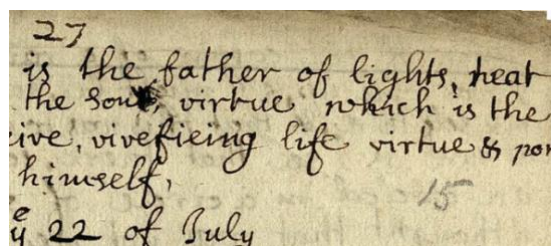 27
is the father of lights, heat
the soul, virtue which is the
ive, vivefieing life virtue & por
himself,
15
ye 22 of July